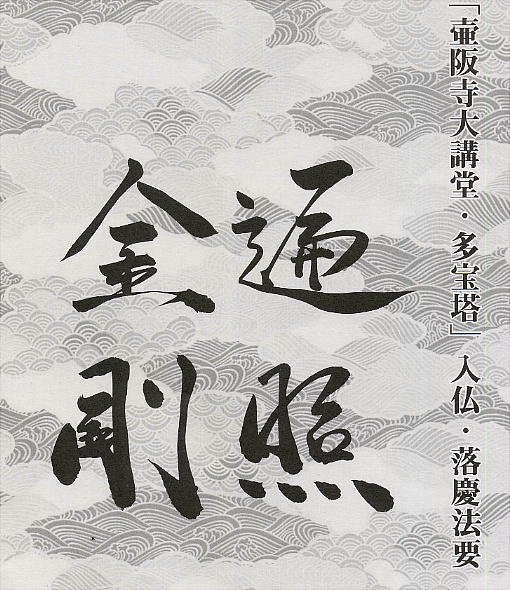 「壷阪寺大講堂・多宝塔」入仏・落慶法要
遍照
金剛